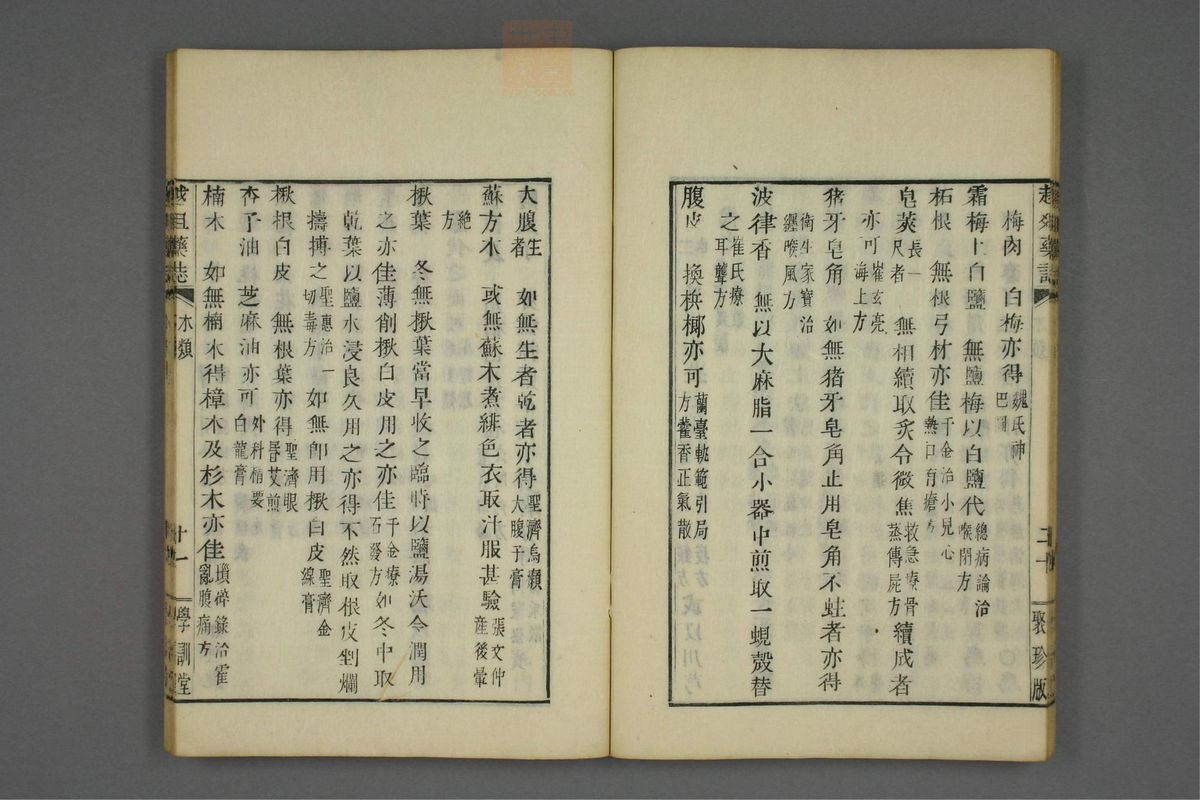 梅肉　白梅亦得魏氏神巴圖
霜梅上白鹽　無鹽梅以白鹽代總病論治喉閉方
柘根　無根弓材亦佳千金治小兒心熱口有瘡方
皂莢長一尺者　無相續取炙令微焦救急療骨蒸傳屍方續成者
亦可崔玄亮海上方
猪牙皂角　如無猪牙皂角止用皂角不蛀者亦得
衛生家寶治纏喉風方
波律香　無以大麻脂一合小器中煎取一蜆殼替
之崔氏療耳聾方
腹皮　換檳榔亦可蘭臺軌範引局方藿香正氣散
聚珍版
大腹生者　如無生者乾者亦得聖濟烏癩大腹子膏
蘇方木　或無蘇木煮緋色衣取汁服甚驗張文仲產後暈
絕方
楸葉　冬無楸葉當早收之臨時以鹽湯沃令潤用
之亦佳薄削楸白皮用之亦佳千金療石發方如冬中取
乾葉以鹽水浸良久用之亦得不然取根皮剉爛
擣搏之聖惠治一切毒方　如無卽用楸白皮聖濟金線膏
楸根白皮　無根葉亦得聖濟眼昏艾煎
杏子油　芝麻油亦可外科精要白龍膏
楠木　如無楠木得樟木及杉木亦佳瑣碎錄治霍亂腹痛方
藥誌　木類　十一　學訓堂